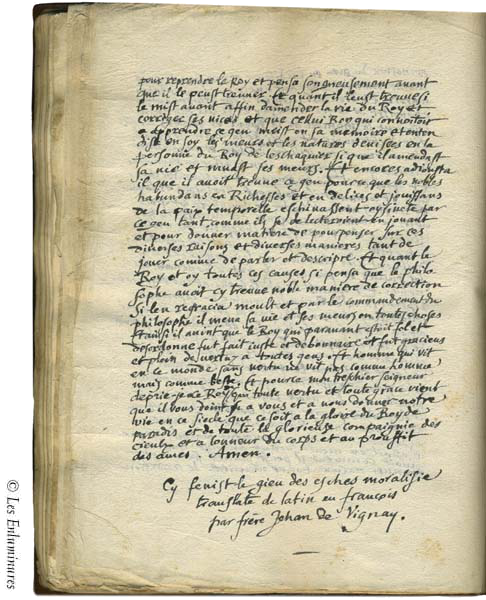 pour reprendre le Roy et pensa songneusement avant
que il le peust trouver. Et quant il leust trouve si
le mist avant affin damender la vie du Roy et
corriger ses vices et que cellui Roy qui convoitoit
a apprendre ce geu meist en sa memoire et enten
dist en soy les meurs et les natures devisees en la
personne du Roy de leschaquier si que il amendast
sa vie et muast ses meurs. Et encores adiousta
il que il avoit trouve ce geu pource que les nobles
habundans en Richesses et en delices et jouissans
de la paix temporelle eschivassent oysivete par
ce geu tant comme ilz se delecteroient en jouant
et pour donner matiere de pourpenser sur ces
diverses raisons et diverses manieres tant de
jouer comme de parler et descripre. Et quant le
Roy et oy toutes ces causes si pensa que le philo
sophe avoit cy trouve noble maniere de correction
Si len regracia moult et par le commandement du
philosophe il mena sa vie et ses meurs en toutes choses
Et ainsi il avint que le Roy qui paravant estoit fol et
desordonne fut fait juste et debonnaire et fut gracieus
et plain de vertuz a toutes gens. homme qui vit
en ce monde sans vertu ne vit pas comme homme
mais comme beste. Et pource mon treschier seigneur
deprie je a Roy qui toute vertu et toute grace vient
que il vous doint et a vous et a nous donner notre
vie en ce siecle que ce soit a la gloire du Roy de
paradis et de toute la glorieuse compaignie des
cieulx et a lonneur du corps et au prouffit
des ames. Amen.
Cy fenist le gieu des esches moralisie
translate de latin en francois
par frère Jehan de Vignay.
© Les Enluminures